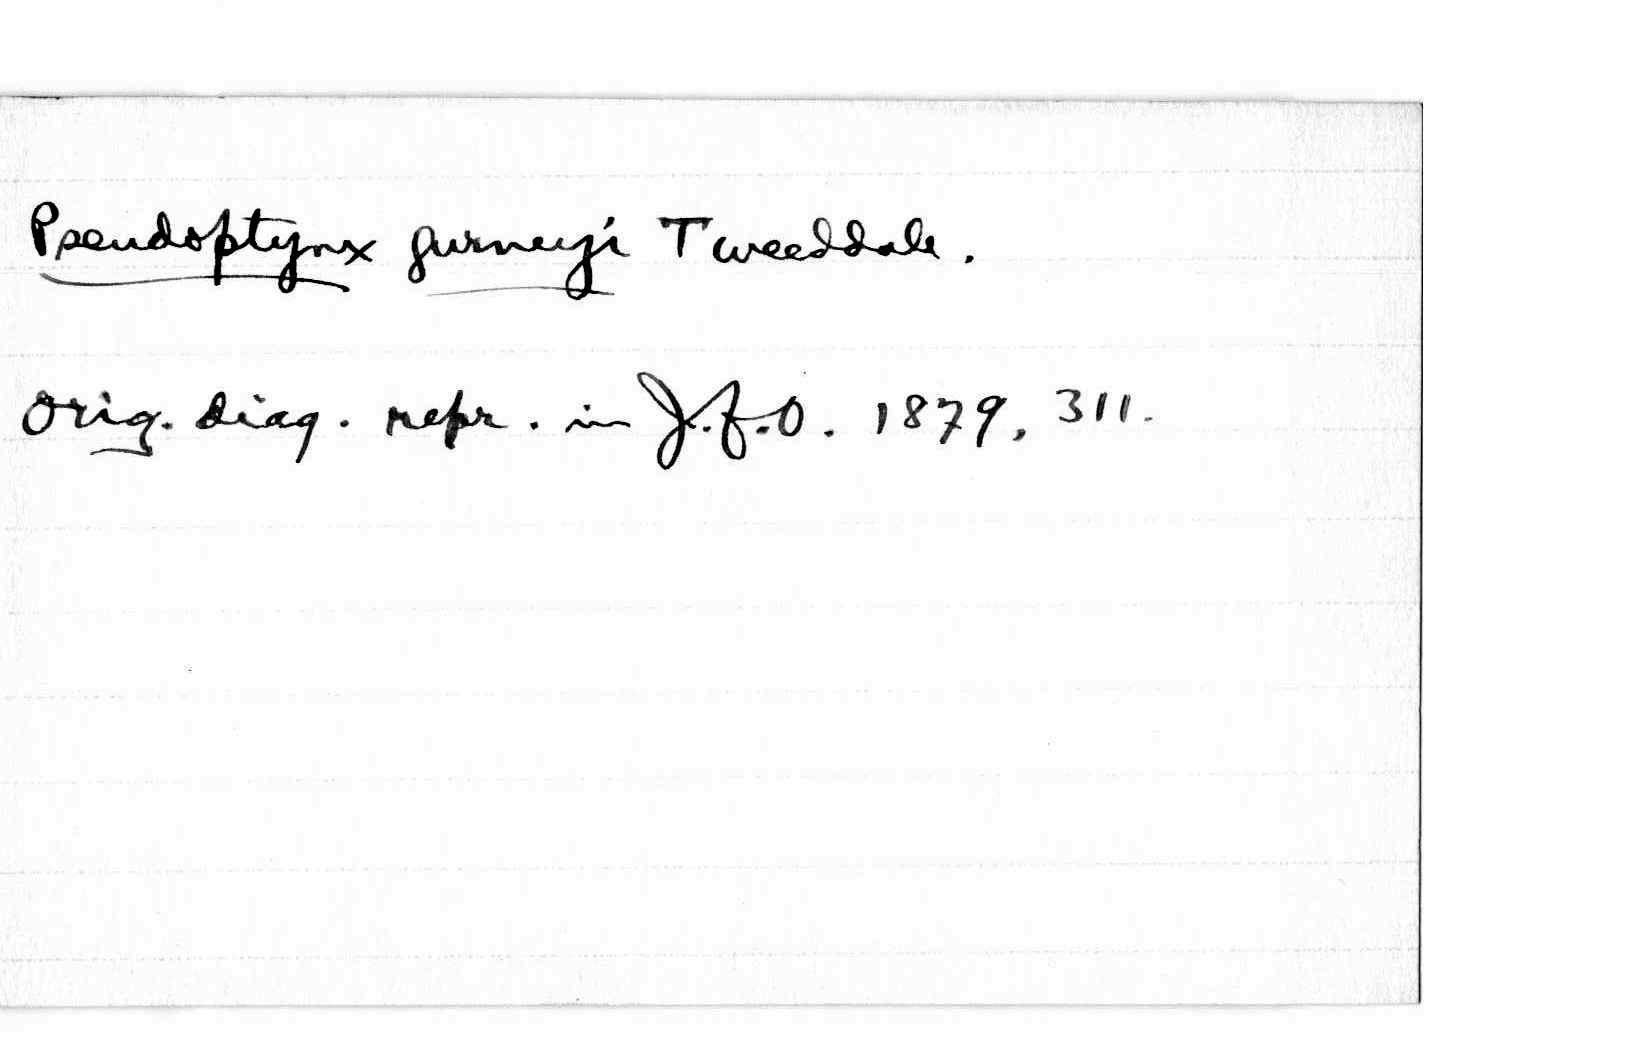 Pseudoptynx gurneyi Tweeddale.
Orig. diag. repr. in J.f.O. 1879, 311.